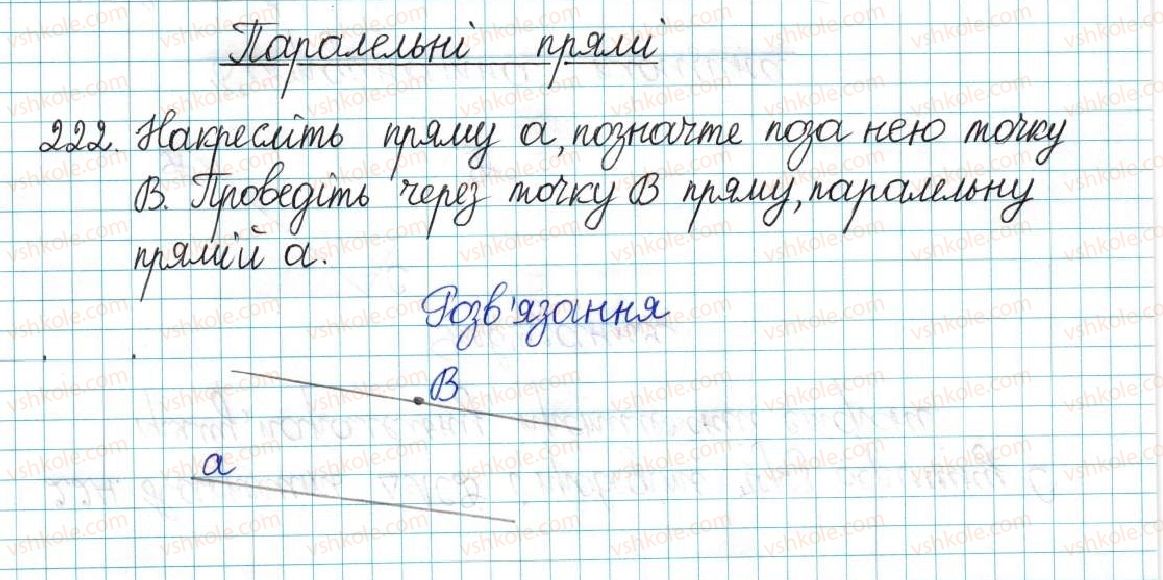 Паралельні прямі
222. Накресліть пряму а, позначте поза нею точку
В. Проведіть через точку В пряму, паралельну
прямій а.
Розв'язання
В
а
vshkole.com